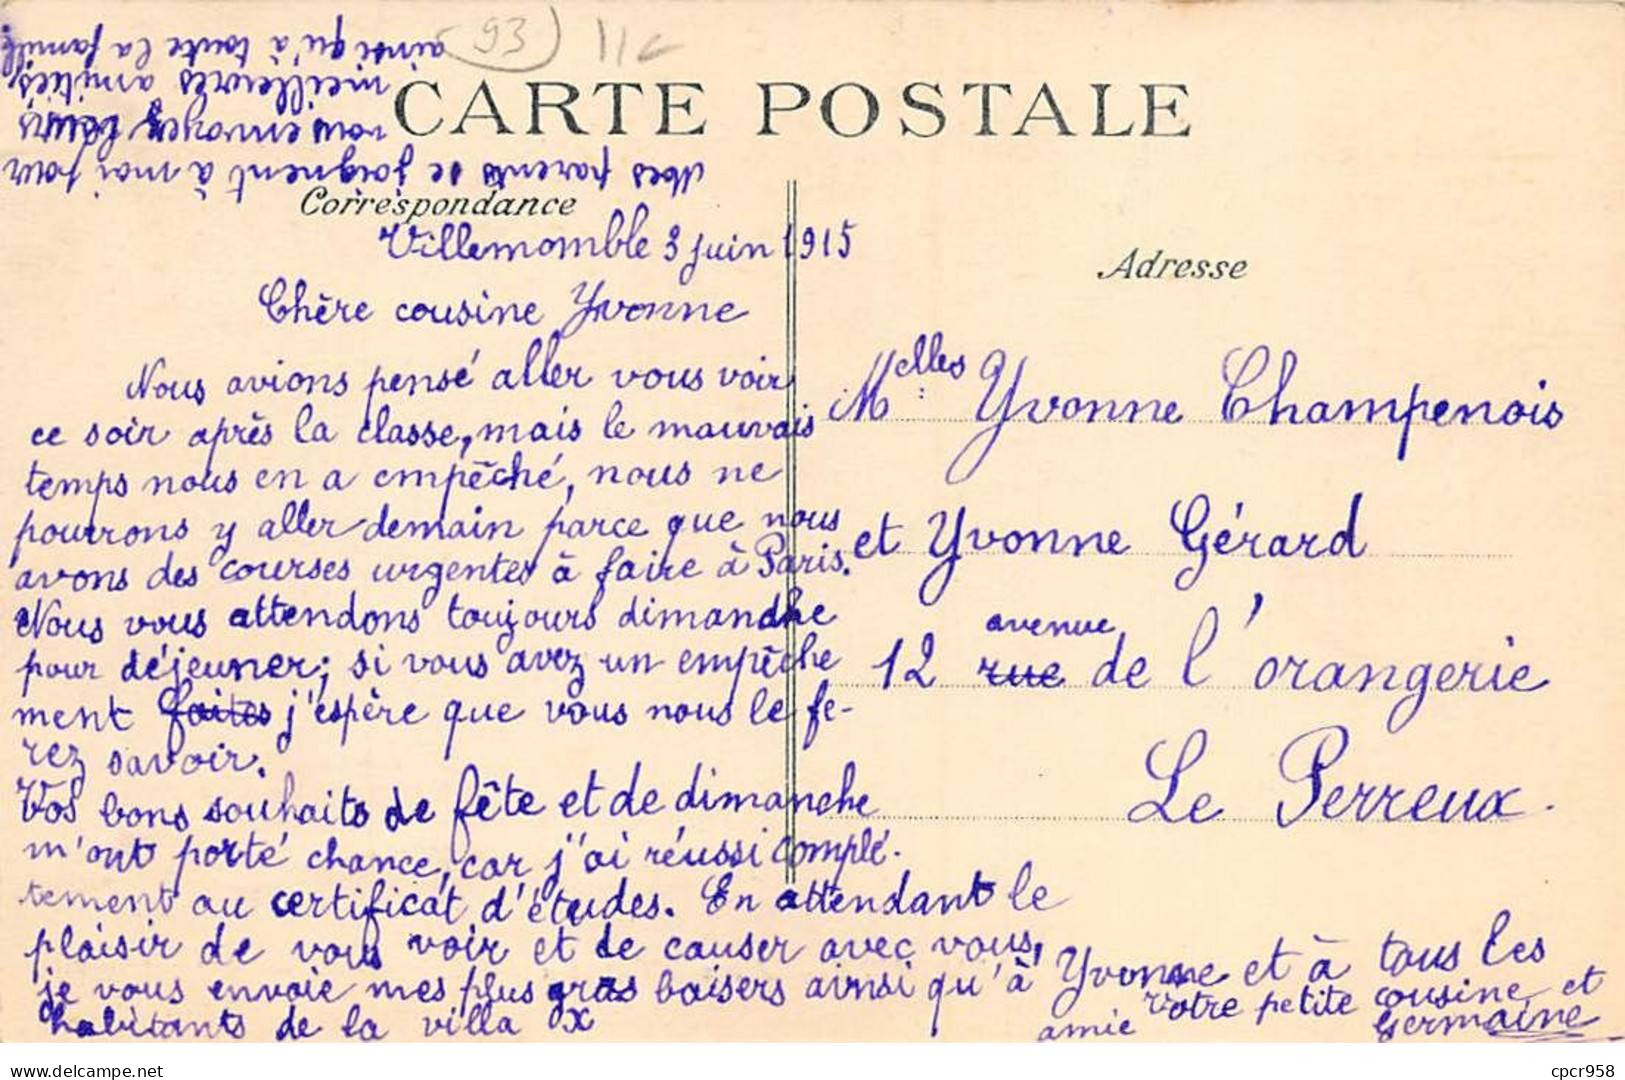 (93) 11c
CARTE POSTALE
Correspondance
Villemomble 3 juin 1915
Chère cousine Yvonne
Nous avions pensé aller vous voir
ce soir après la classe, mais le mauvais
temps nous en a empêché, nous ne
pourrons y aller demain parce que nous
avons des courses urgentes à faire à Paris.
Nous vous attendons toujours dimanche
pour déjeuner; si vous avez un empêche
ment faites j'espère que vous nous le fe-
rez savoir.
Vos bons souhaits de fête et de dimanche
m'ont porté chance, car j'ai réussi complé-
tement au certificat d'études. En attendant le
plaisir de vous voir et de causer avec vous,
je vous envoie mes plus gros baisers ainsi qu'à Yvonne et à tous les
habitants de la villa X
Votre petite cousine et
amie Germaine
Mes parents se joignent à moi pour
vous envoyer leurs
meilleures amitiés,
ainsi qu'à toute la famille
Adresse
Melles Yvonne Champenois
et Yvonne Gérard
12 rue avenue de l'orangerie
Le Perreux.
delcampe.net
cpcr958